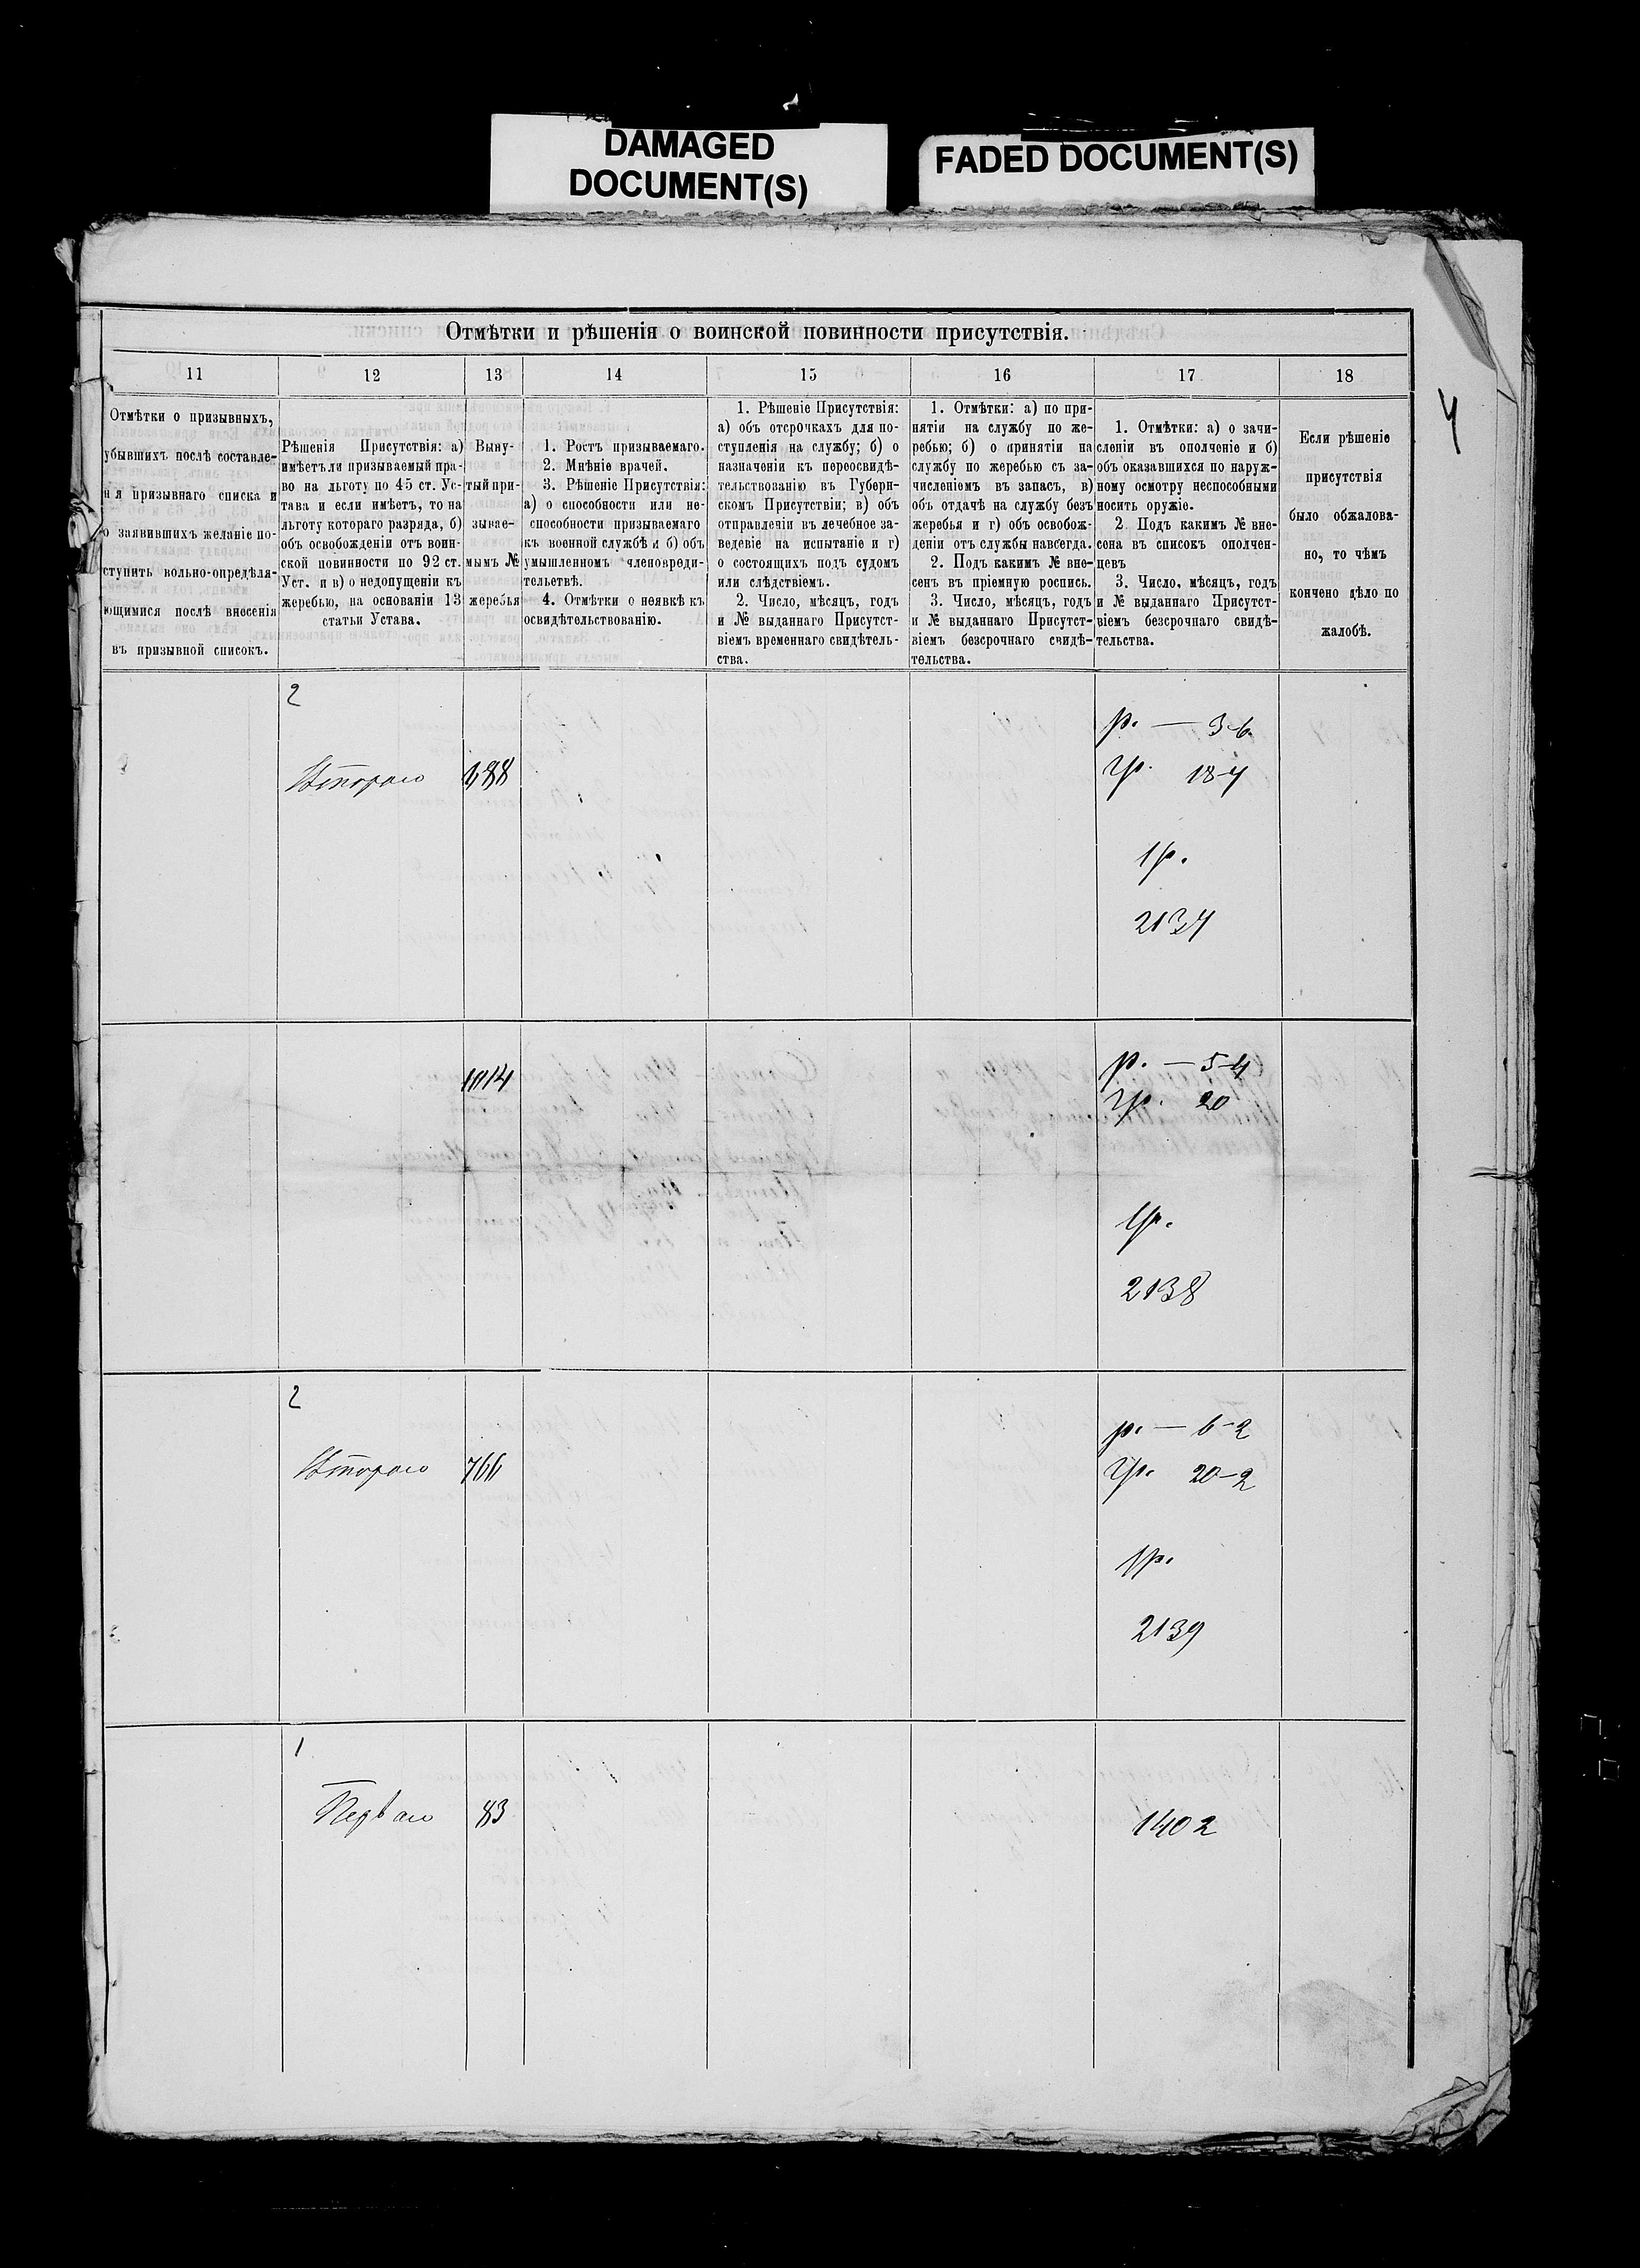 DAMAGED
DOCUMENT(S)
FADED DOCUMENT(S)
4
Отмѣтки и рѣшенія о воинской повинности присутствія.
11
12
13
14
15
16
17
18
Отмѣтки о призывныхъ,
убывшихъ послѣ составле-
нія призывнаго списка и
о заявившихъ желаніе по-
ступить вольно-опредѣля-
ющимися послѣ внесенія
въ призывной списокъ.
Рѣшенія Присутствія: а)
имѣетъ ли призываемый пра-
во на льготу по 45 ст. Ус-
тава и если имѣетъ, то на
льготу котораго разряда, б)
объ освобожденіи отъ воин-
ской повинности по 92 ст.
Уст. и в) о недопущеніи къ
жеребью, на основаніи 13
статьи Устава.
Выну-
тый при-
зывае-
мымъ №
жеребья
1. Ростъ призываемаго.
2. Мнѣніе врачей.
3. Рѣшеніе Присутствія:
а) о способности или не-
способности призываемаго
къ военной службѣ и б) объ
умышленномъ членовреди-
тельствѣ.
4. Отмѣтки о неявкѣ къ
освидѣтельствованію.
1. Рѣшеніе Присутствія:
а) объ отсрочкахъ для по-
ступленія на службу; б) о
назначеніи къ переосвидѣ-
тельствованію въ Губерн-
скомъ Присутствіи; в) объ
отправленіи въ лечебное за-
веденіе на испытаніе и г)
о состоящихъ подъ судомъ
или слѣдствіемъ.
2. Число, мѣсяцъ, годъ
и № выданнаго Присутст-
віемъ временнаго свидѣтель-
ства.
1. Отмѣтки: а) по при-
нятіи на службу по же-
ребью; б) о принятіи на
службу по жеребью съ за-
численіемъ въ запасъ, в)
объ отдачѣ на службу безъ
жеребья и г) объ освобож-
деніи отъ службы навсегда.
2. Подъ какимъ № вне-
сенъ въ пріемную роспись.
3. Число, мѣсяцъ, годъ
и № выданнаго Присутст-
віемъ безсрочнаго свидѣ-
тельства.
1. Отмѣтки: а) о зачи-
сленіи въ ополченіе и б)
объ оказавшихся по наруж-
ному осмотру неспособными
носить оружіе.
2. Подъ какимъ № вне-
сена въ списокъ ополчен-
цевъ
3. Число, мѣсяцъ, годъ
и № выданнаго Присутст-
віемъ безсрочнаго свидѣ-
тельства.
Если рѣшеніе
присутствія
было обжалова-
но, то чѣмъ
кончено дѣло по
жалобѣ.
2
Втораго
р. — 3-6.
гр. 18-4
1р.
2137
1114
р. — 5-4
гр. 20
1р.
2138
2
Втораго
766
р. — 6-2
гр. 20-2
1р.
2139
1
Перваго
83
1402